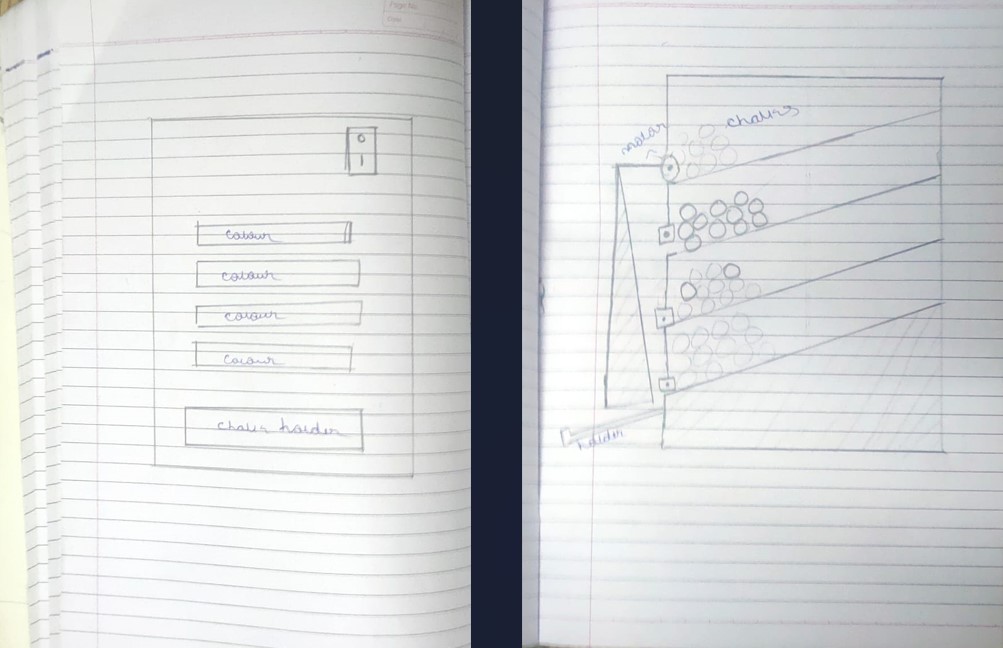 Page No.
Date
O
I
colour
colour
colour
colour
chalk holder
motor
chalks
holder